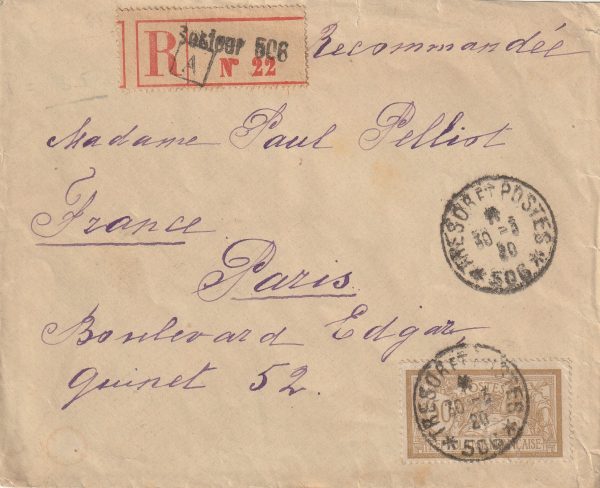 Secteur 506
R
A
N° 22
Recommandée
Madame Paul Pelliot
France
Paris
Boulevard Edgar
Quinet 52.
* TRESOR ET POSTES *
30 -3
20
506
* TRESOR ET POSTES *
30 -3
20
506
POSTES